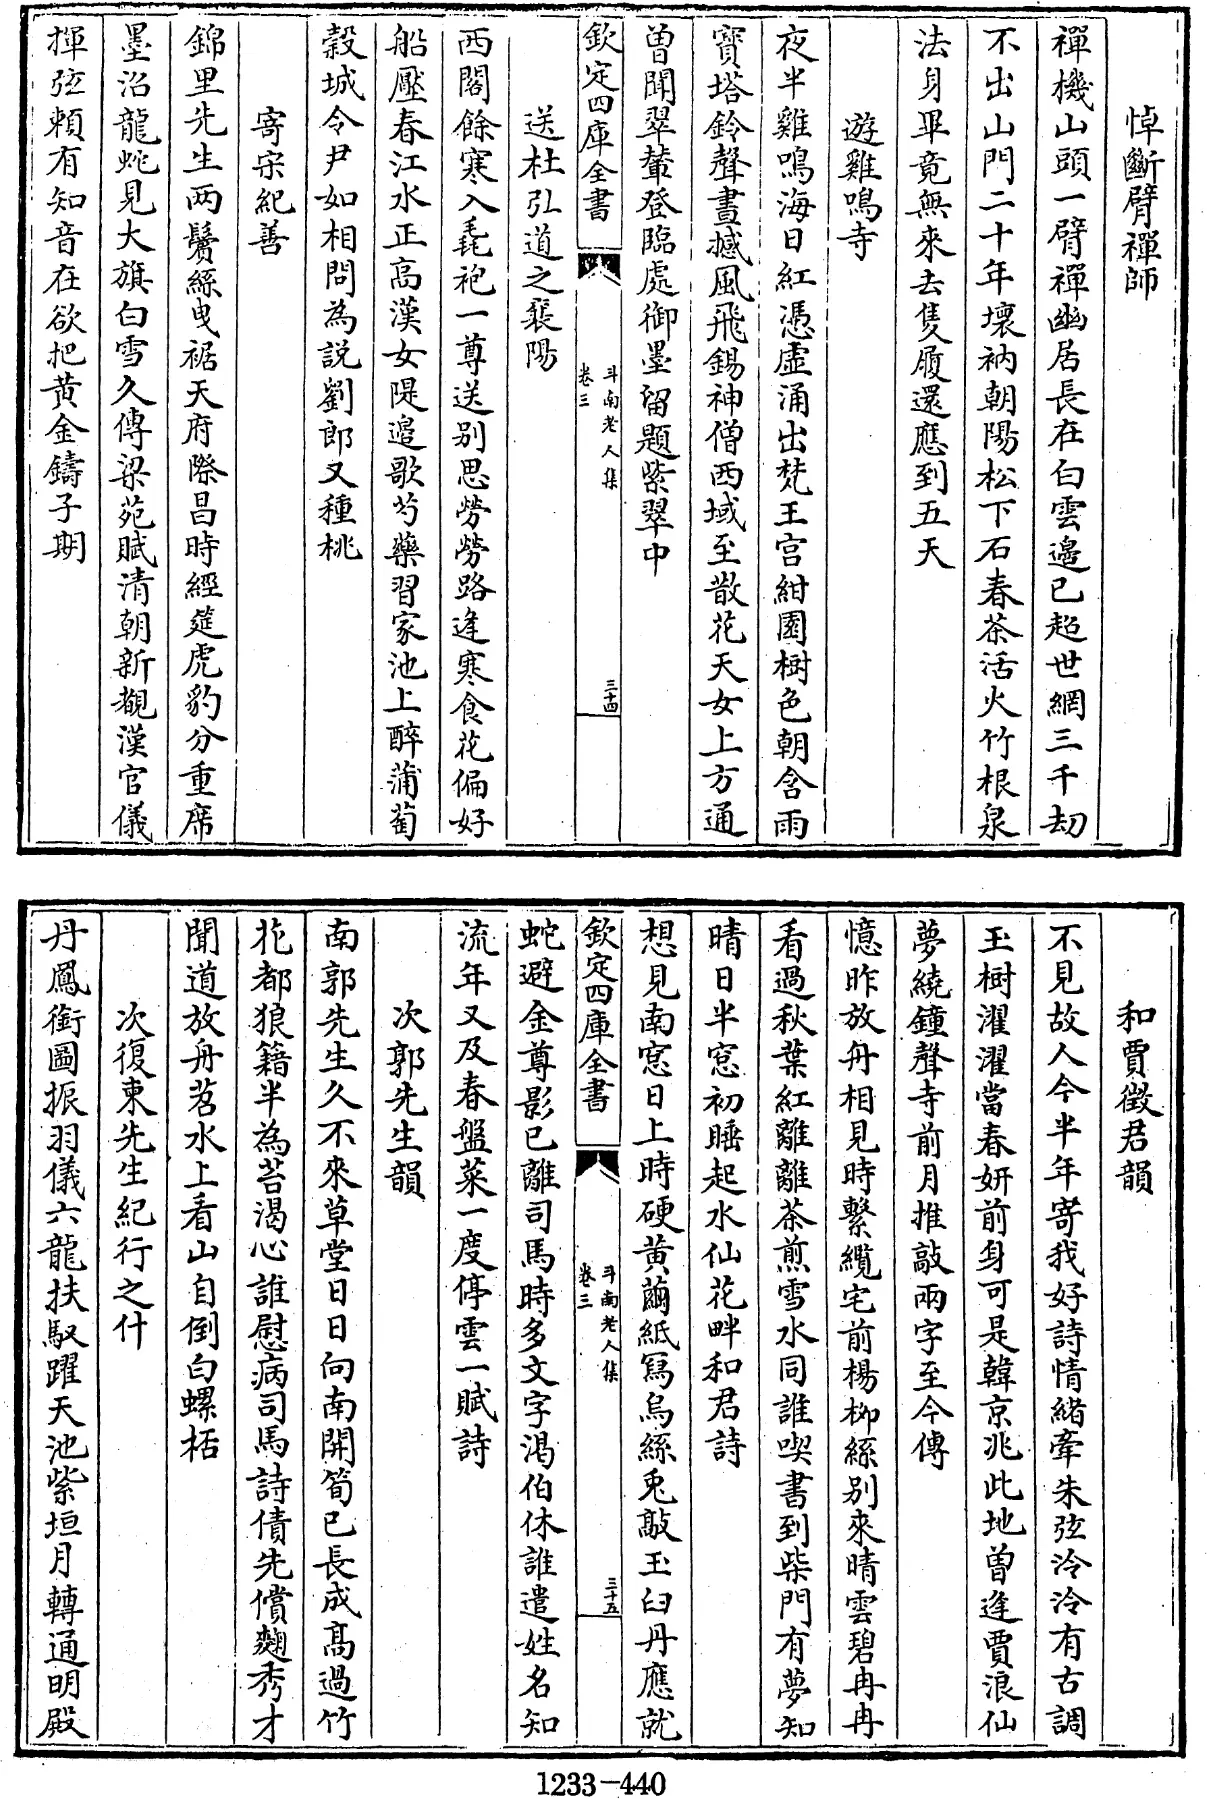 悼斷臂禪師
禪機山頭一臂禪幽居長在白雲邉已超世網三千劫
不出山門二十年壞衲朝陽松下石春茶活火竹根泉
法身畢竟無來去隻履還應到五天
遊雞鳴寺
夜半雞鳴海日紅憑虛涌出梵王宫紺園樹色朝含雨
寳塔鈴聲晝撼風飛錫神僧西域至散花天女上方通
曽聞翠輦登臨處御墨留題紫翠中
欽定四庫全書
斗南老人集
卷三
三十四
送杜弘道之襄陽
西閣餘寒入毳袍一尊送别思勞勞路逢寒食花偏好
船壓春江水正高漢女隄邉歌芍藥習家池上醉蒲萄
榖城令尹如相問為説劉郎又種桃
寄宋紀善
錦里先生两鬢絲曵裾天府際昌時經筵虎豹分重席
墨沼龍蛇見大旗白雪久傳梁苑賦清朝新覩漢官儀
揮弦頼有知音在欲把黄金鑄子期
和賈徴君韻
不見故人今半年寄我好詩情緒牽朱弦泠泠有古調
玉樹濯濯當春妍前身可是韓京兆此地曽逢賈浪仙
夢繞鐘聲寺前月推敲兩字至今傳
憶昨放舟相見時繫纜宅前楊栁絲别來晴雲碧冉冉
看過秋葉紅離離茶煎雪水同誰喫書到柴門有夢知
晴日半窓初睡起水仙花畔和君詩
想見南窓日上時硬黄繭紙寫烏絲兎敲玉臼丹應就
欽定四庫全書
斗南老人集
卷三
三十五
蛇避金尊影已離司馬時多文字渴伯休誰遣姓名知
流年又及春盤菜一度停雲一賦詩
次郭先生韻
南郭先生久不來草堂日日向南開筍已長成髙過竹
花都狼籍半為苔渇心誰慰病司馬詩債先償麴秀才
聞道放舟苕水上看山自倒白螺桮
次復東先生紀行之什
丹鳳銜圖振羽儀六龍扶馭躍天池紫垣月轉通明殿
1233-440